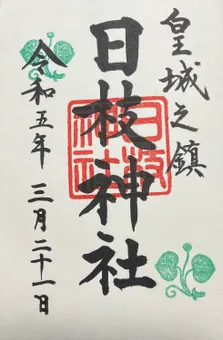 皇城之鎮
日枝神社
令和五年 三月二十一日
日枝
神社